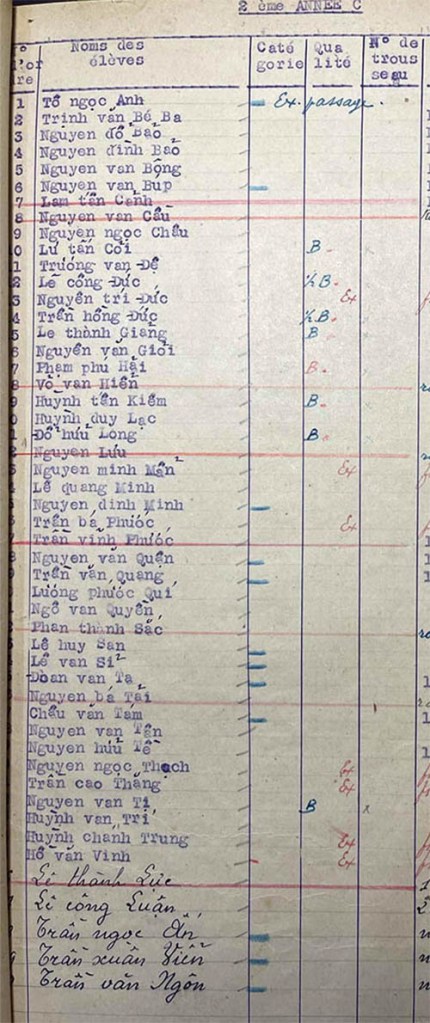 2 ème ANNEE C
N° d'or dre Noms des élèves Caté gorie Qua lité N° de trous seau
1 Tô ngọc Anh Ex. passage.
2 Trịnh văn Bé Ba
3 Nguyen đổ Bảo
4 Nguyen đình Bảo
5 Nguyen van Bông
6 Nguyen van Bup
7 Lam tấn Cảnh
8 Nguyen van Cầu
9 Nguyen ngọc Chẩu
0 Lư tấn Còi B
1 Trương van Đê
2 Lê công Đức ½ B
3 Nguyên tri Đức Ex
4 Trần hồng Đức ½ B
5 Le thành Giang B
6 Nguyên văn Giỏi
7 Phạm phú Hải B
8 Võ van Hiển
9 Huỳnh tấn Kiểm B
0 Huỳnh duy Lạc
1 Đổ hữu Long B
2 Nguyen Lưu
3 Nguyen minh Mẩn Ex
Lê quang Minh
Nguyen dinh Minh
Trần bá Phước Ex
Trần vĩnh Phước
8 Nguyên văn Quận
Trần văn Quang
Lương phước Qui
Ngô van Quyền
Phan thành Sắc
Lê huy San
Lê van Sĩ
Đoàn van Tạ
Nguyen bá Tài
Châu văn Tám
Nguyen van Tân
Nguyen hữu Tề
Nguyen ngọc Thạch Ex
Trần cao Thắng Ex
Nguyen van Tị B
Huỳnh van Trí
Huỳnh chánh Trung Ex
Hồ văn Vinh Ex
Lê thành Lực
Lê công Luận
Trần ngọc Ẩn
Trần xuân Viễn
Trần văn Ngôn